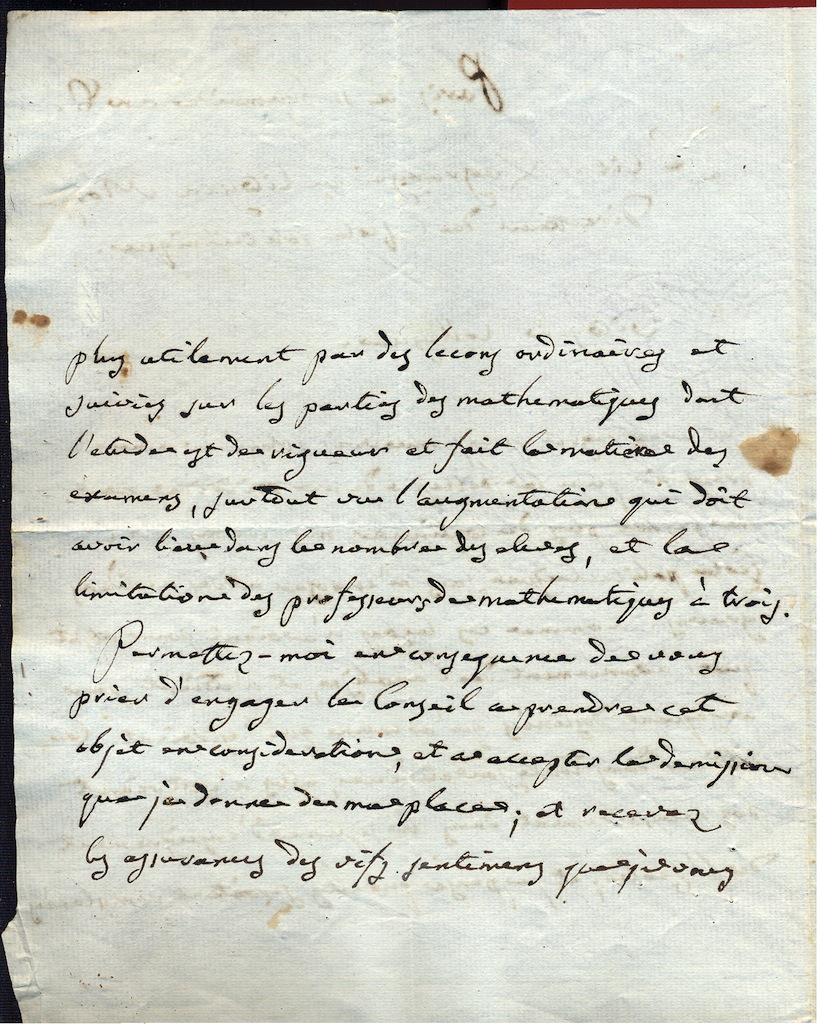 plus utilement par des lecons ordinaires et
suivies sur les parties des mathematiques dont
l'etude est de rigueur et fait la matiere des
examens, surtout vu l'augmentation qui doit
avoir lieu dans le nombre des eleves, et la
limitation des professeurs de mathematiques à trois.
Permettez-moi en consequence de vous
prier d'engager le Conseil a prendre cet
objet en consideration, et a accepter la demission
que je donne de ma place; et recevez
les assurances des vifs sentimens que je vous